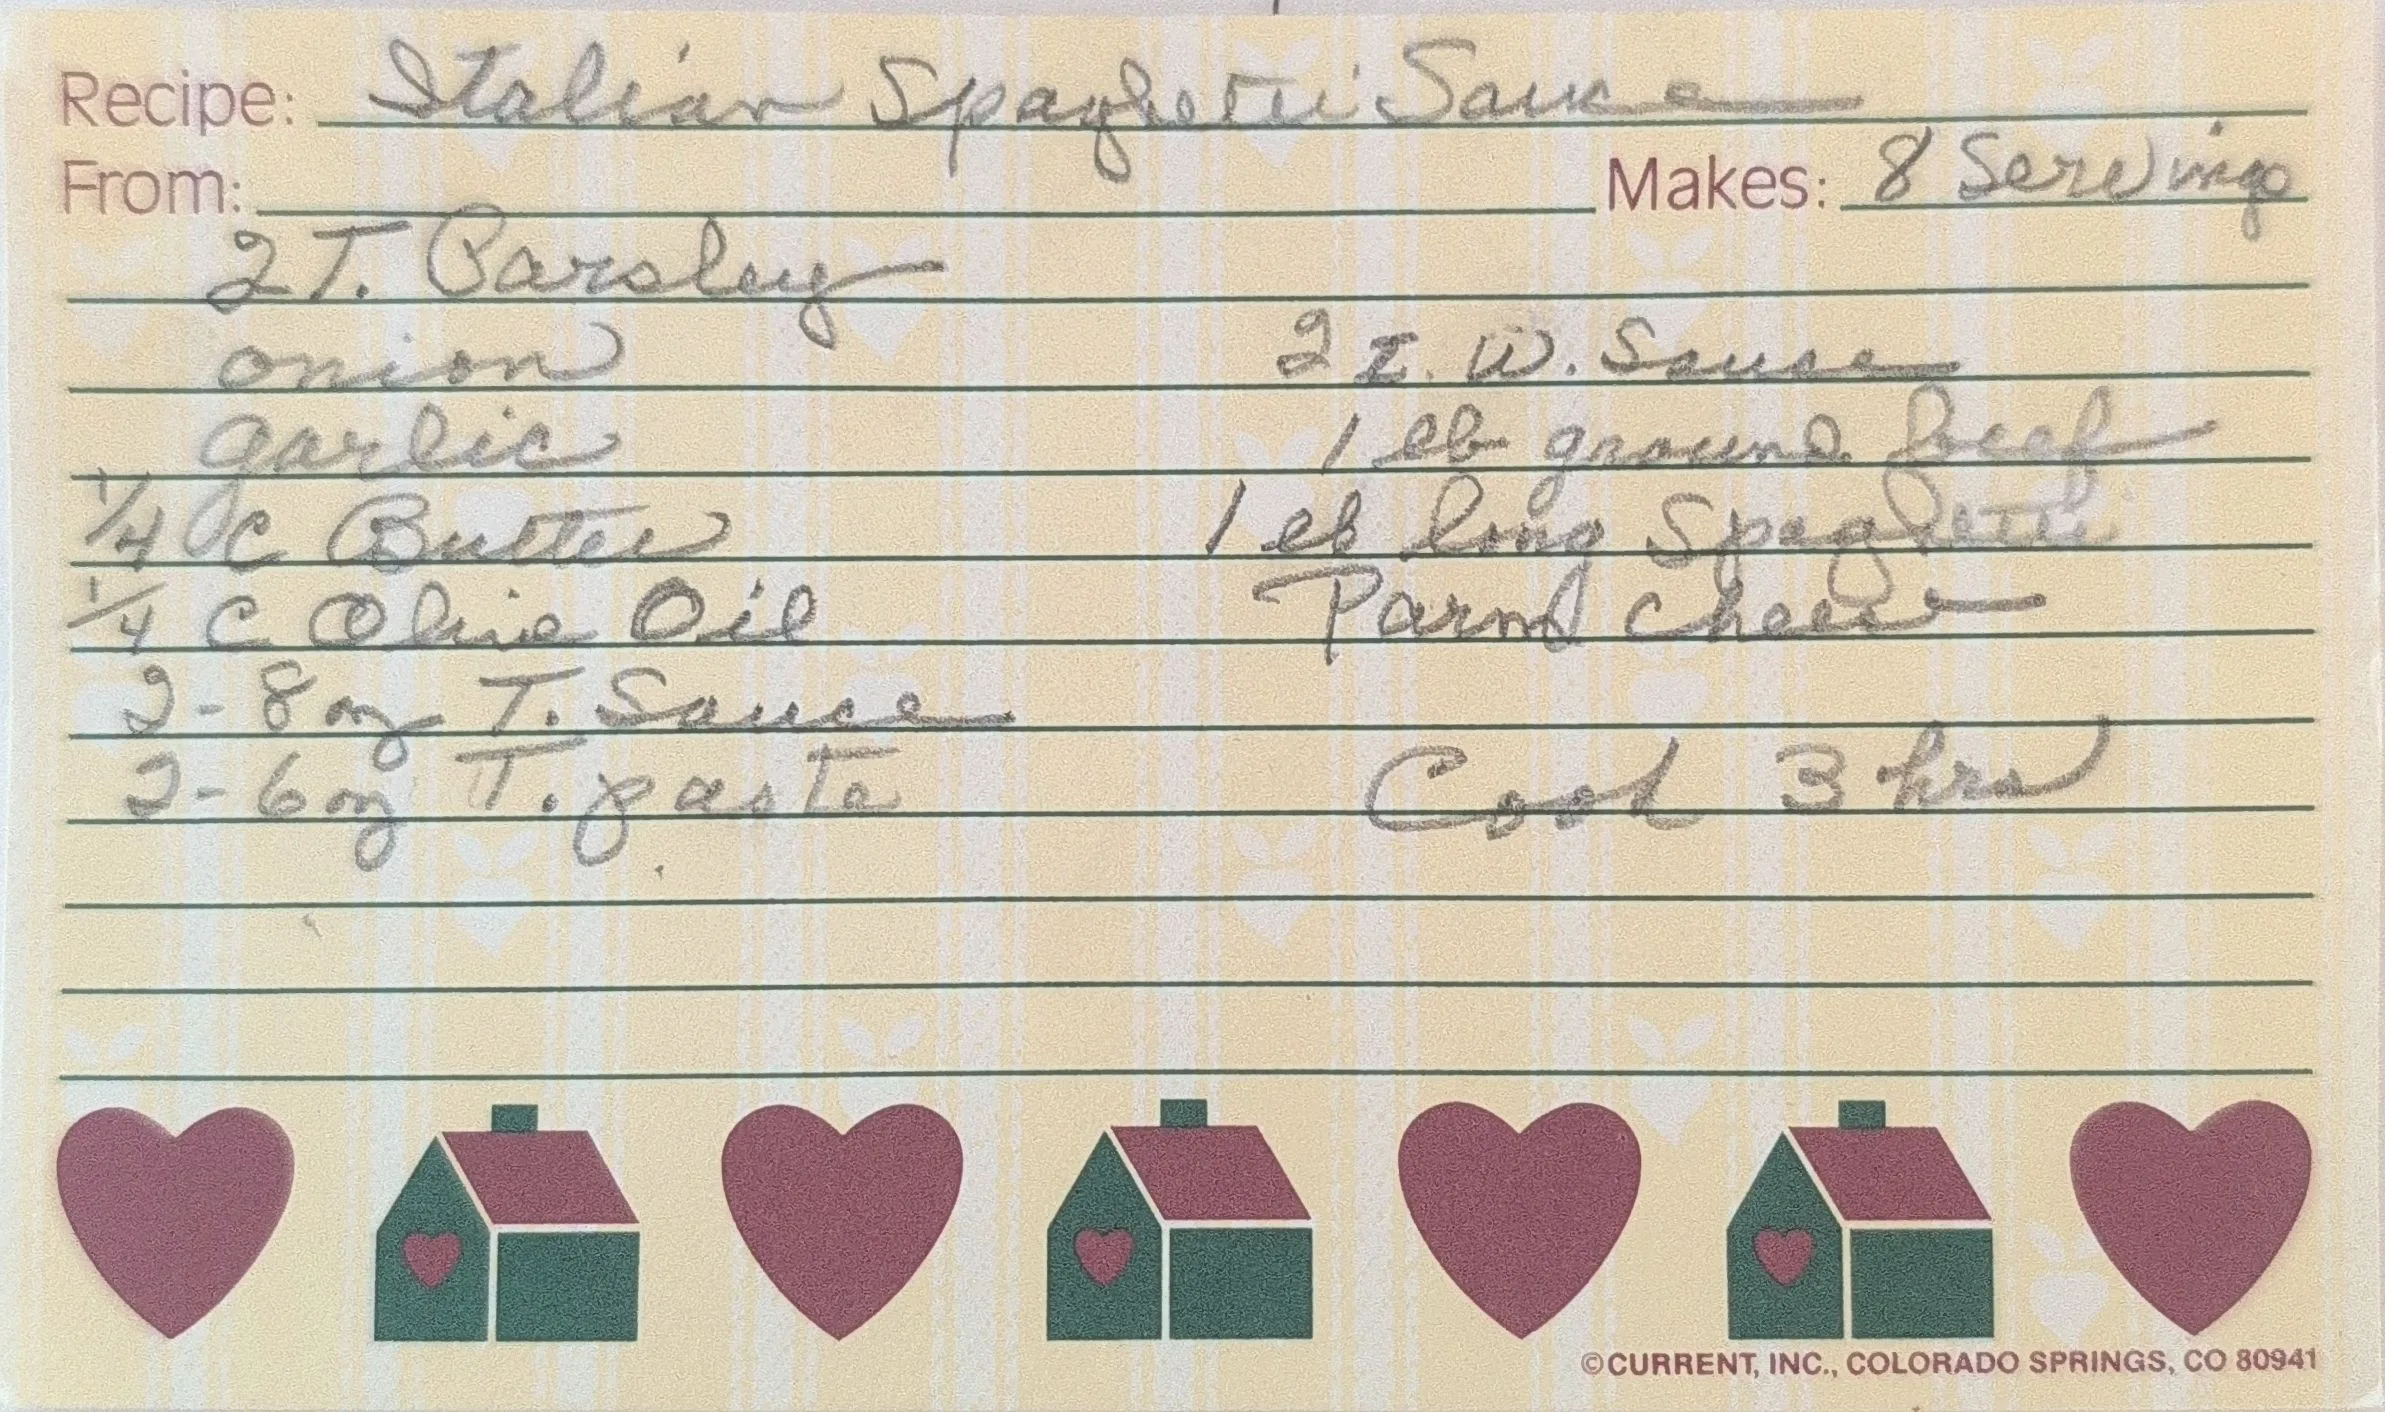 Recipe: Italian Spaghetti Sauce
From: Makes: 8 Servings
2 T. Parsley
onion
garlic
1/4 C Butter
1/4 C Olive Oil
2 - 8 oz T. Sauce
2 - 6 oz T. paste
2 T. W. Sauce
1 lb ground beef
1 lb long Spaghetti
Parm Cheese
Cook 3 hrs
©CURRENT, INC., COLORADO SPRINGS, CO 80941